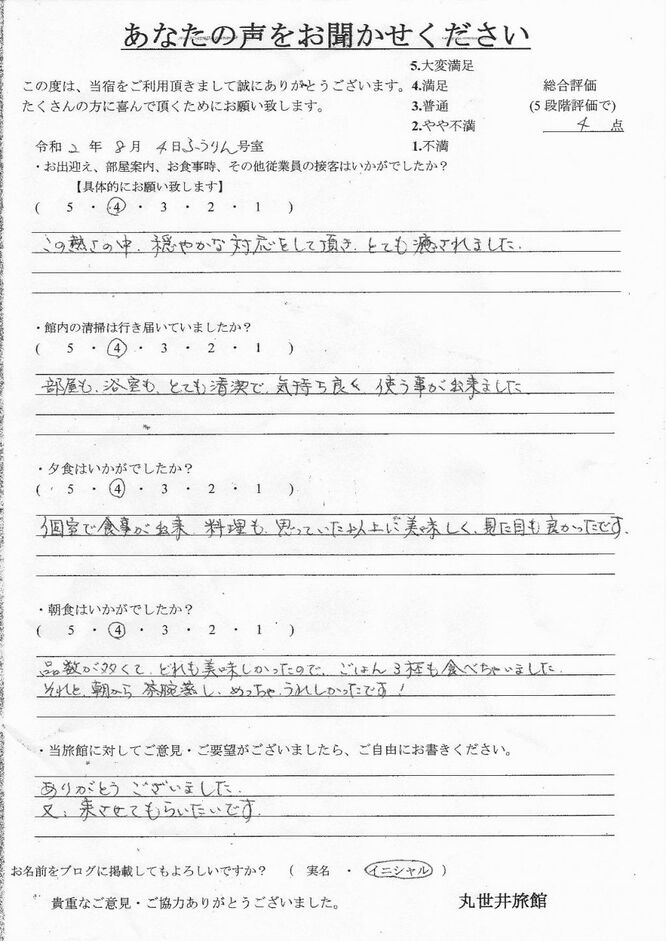 あなたの声をお聞かせください
この度は、当宿をご利用頂きまして誠にありがとうございます。
たくさんの方に喜んで頂くためにお願い致します。
5.大変満足
4.満足
3.普通
2.やや不満
1.不満
総合評価
(5段階評価で)
4 点
令和 2 年 8 月 4 日 ふうりん 号室
・お出迎え、部屋案内、お食事時、その他従業員の接客はいかがでしたか？
【具体的にお願い致します】
( 5 ・ 4 ・ 3 ・ 2 ・ 1 )
この熱さの中、穏やかな対応をして頂き、とても癒されました。
・館内の清掃は行き届いていましたか？
( 5 ・ 4 ・ 3 ・ 2 ・ 1 )
部屋も、浴室も、とても清潔で、気持ち良く、使う事が出来ました
・夕食はいかがでしたか？
( 5 ・ 4 ・ 3 ・ 2 ・ 1 )
個室で食事が出来、料理も、思っていた以上に美味しく、見た目も良かったです。
・朝食はいかがでしたか？
( 5 ・ 4 ・ 3 ・ 2 ・ 1 )
品数が多くて、どれも美味しかったので、ごはん3杯も食べちゃいました。
それと、朝から茶腕蒸し、めっちゃ、うれしかったです！
・当旅館に対してご意見・ご要望がございましたら、ご自由にお書きください。
ありがとうございました。
又、来させてもらいたいです。
お名前をブログに掲載してもよろしいですか？ ( 実名 ・ イニシャル )
貴重なご意見・ご協力ありがとうございました。
丸世井旅館